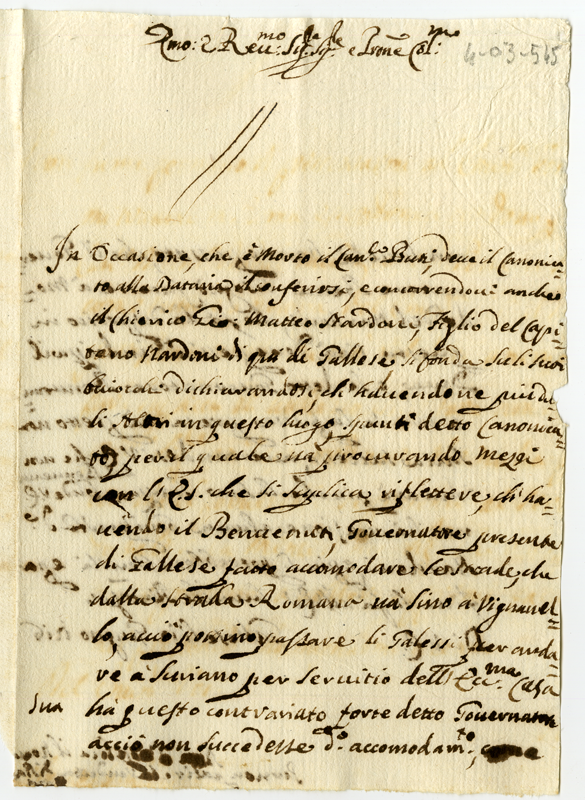 4-03-545
Emo: e Rev:mo Sig: Sig:re e Prone Col:mo
In Occasione, che è Morto il Can:co Buti, deve il Canonica=
to alla Dataria Conferirsi, e concorrendovi anche
il Chierico Gio: Matteo Nardoni, Figlio del Capi=
tano Nardoni di qua di Gallese si fonda su li suoi
baiocchi dichiarandosi, ch havendone piu di
di Altri in questo luogo, spunti detto Canonica=
to, per il quale va procurando mezzi
con l'E.S. che si suplica, riflettere, ch ha=
vendo il Benvenuti, Governatore presente
di Gallese fatto accomodare le strade, che
dalla strada Romana va sino à Vignanel=
lo, acciò possino passare li Galessi, per anda=
re à Suriano per servitio dell' Ecc:ma Casa
Sua ha questo contrariato forte detto Governatore
acciò non succedesse d:o accomodam:to, come